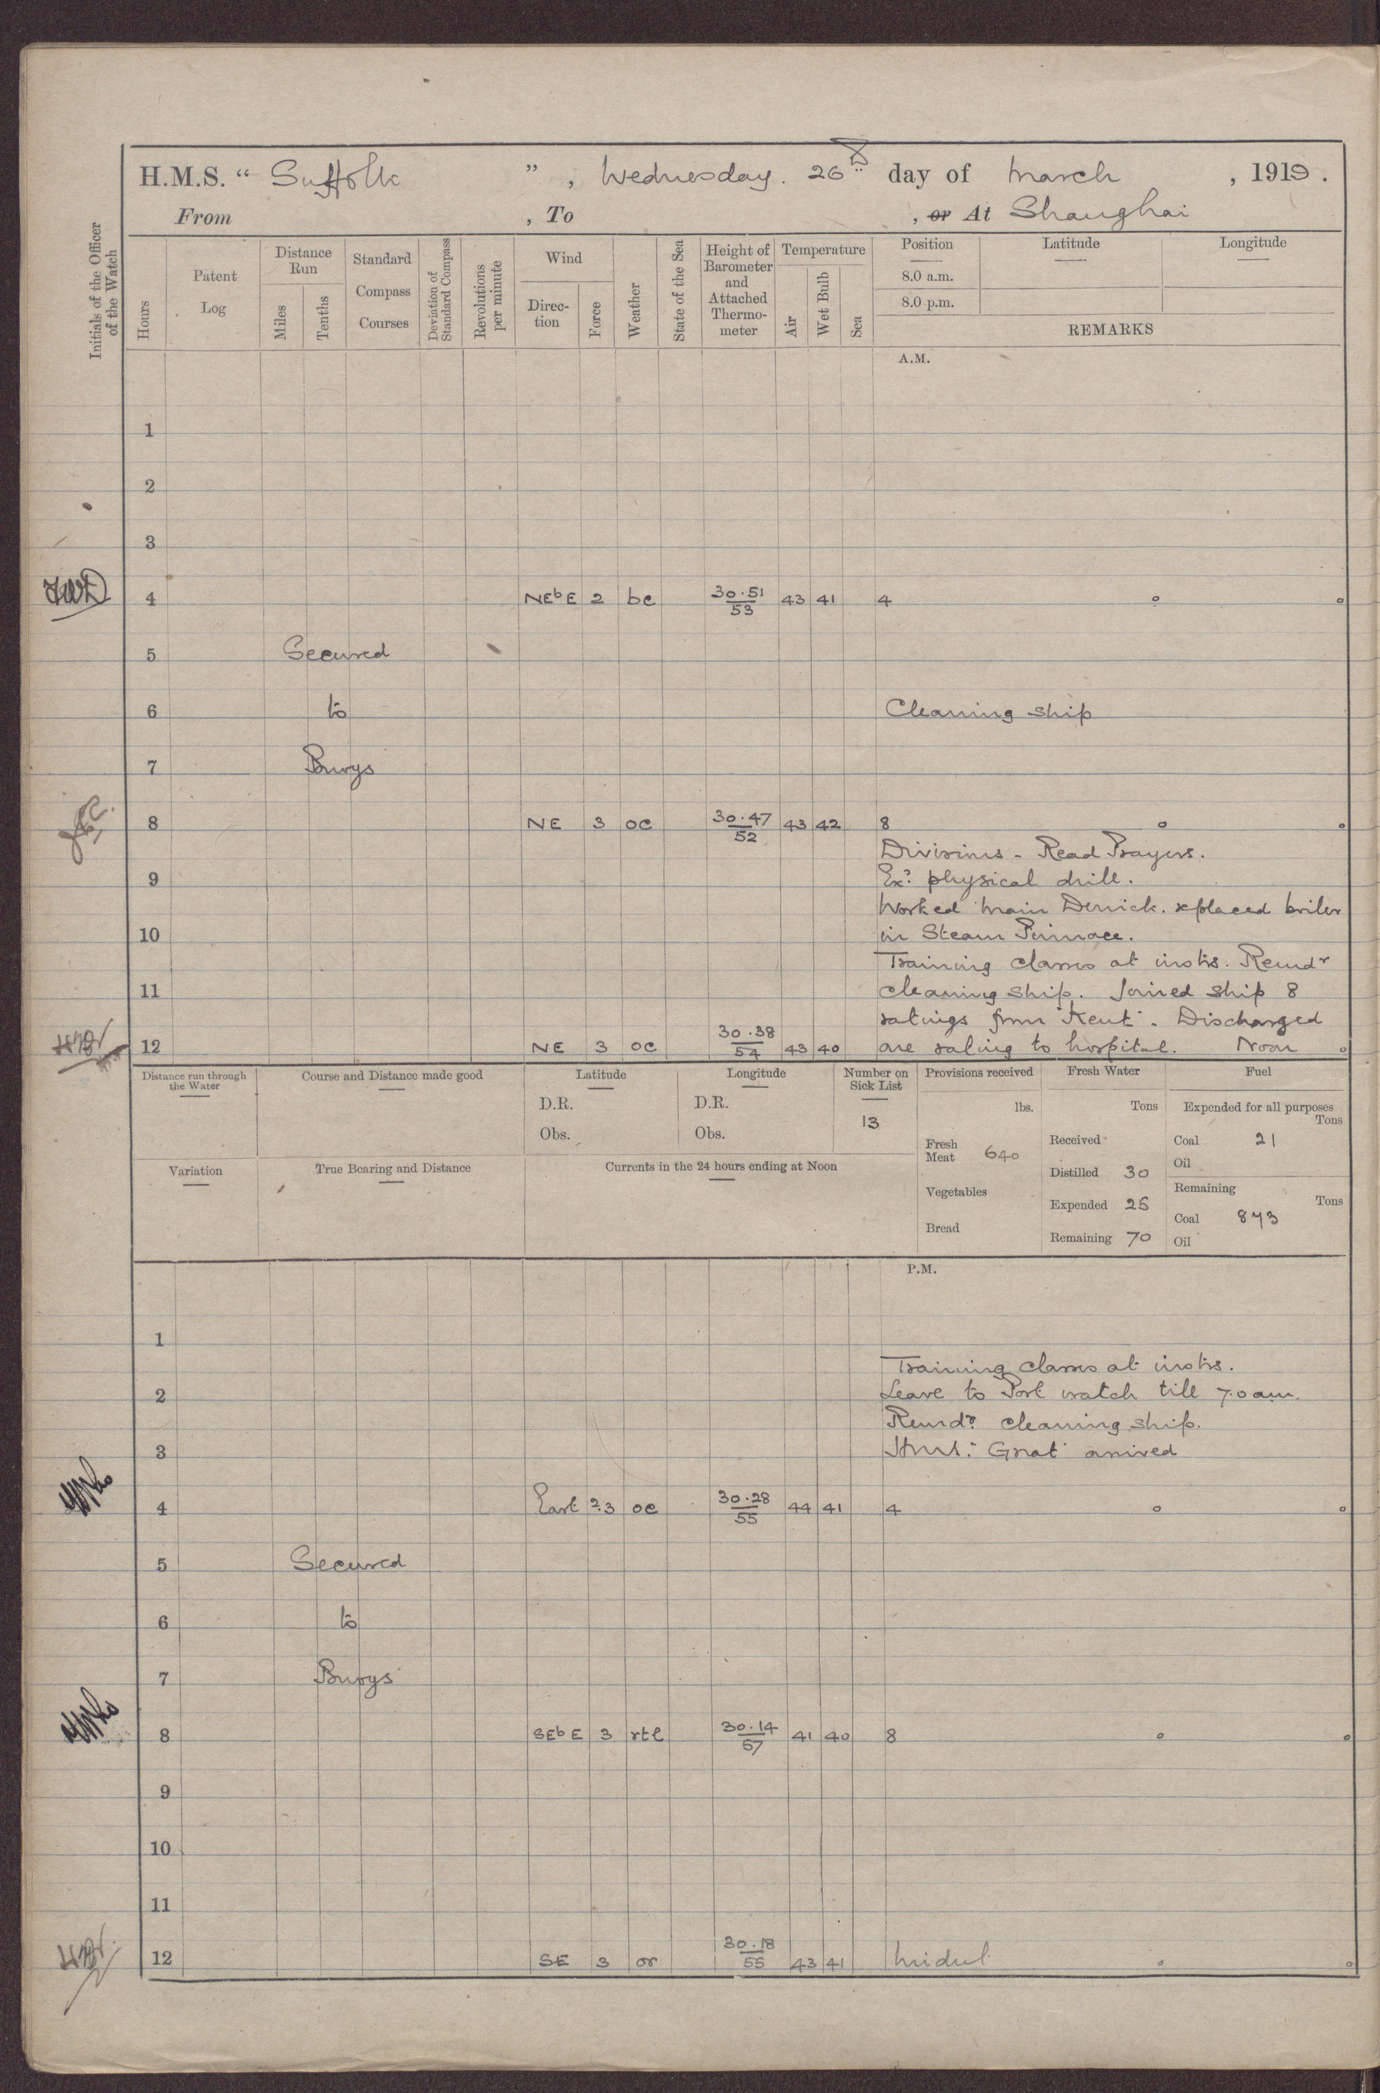 H.M.S. “ Suffolk ” , Wednesday. 26th day of March , 1919 .
From , To , or At Shanghai
Initials of the Officer of the Watch
Hours
Patent Log
Distance Run
Miles
Tenths
Standard Compass Courses
Deviation of Standard Compass
Revolutions per minute
Wind
Direc-tion
Force
Weather
State of the Sea
Height of Barometer and Attached Thermo-meter
Temperature
Air
Wet Bulb
Sea
Position
8.0 a.m.
8.0 p.m.
Latitude
Longitude
REMARKS
A.M.
1
2
3
4 NEbE 2 bc 30.51 53 43 41 4
5 Secured
6 to Cleaning ship
7 Buoys
8 NE 3 oc 30.47 52 43 42 8
Divisions - Read Prayers.
9 Exd physical drill.
Worked Main Derrick. replaced boiler
10 in Steam Pinnace.
Training classes at instrs. Remdr
11 cleaning ship. Joined ship 8
ratings from "Kent". Discharged
12 NE 3 oc 30.38 54 43 40 one rating to hospital. Noon
Distance run through the Water
Course and Distance made good
Latitude
D.R.
Obs.
Longitude
D.R.
Obs.
Number on Sick List
13
Provisions received
lbs.
Fresh Meat 640
Vegetables
Bread
Fresh Water
Tons
Received
Distilled 30
Expended 25
Remaining 70
Fuel
Expended for all purposes
Tons
Coal 21
Oil
Remaining
Tons
Coal 873
Oil
Variation
True Bearing and Distance
Currents in the 24 hours ending at Noon
P.M.
1
Training classes at instrs.
2 Leave to Port watch till 7.0 am.
Remdr cleaning ship.
3 H.M.S. "Gnat" arrived
4 East 2.3 oc 30.28 55 44 41 4
5 Secured
6 to
7 Buoys
8 SEbE 3 rtl 30.14 57 41 40 8
9
10
11
12 SE 3 or 30.18 55 43 41 Midnt